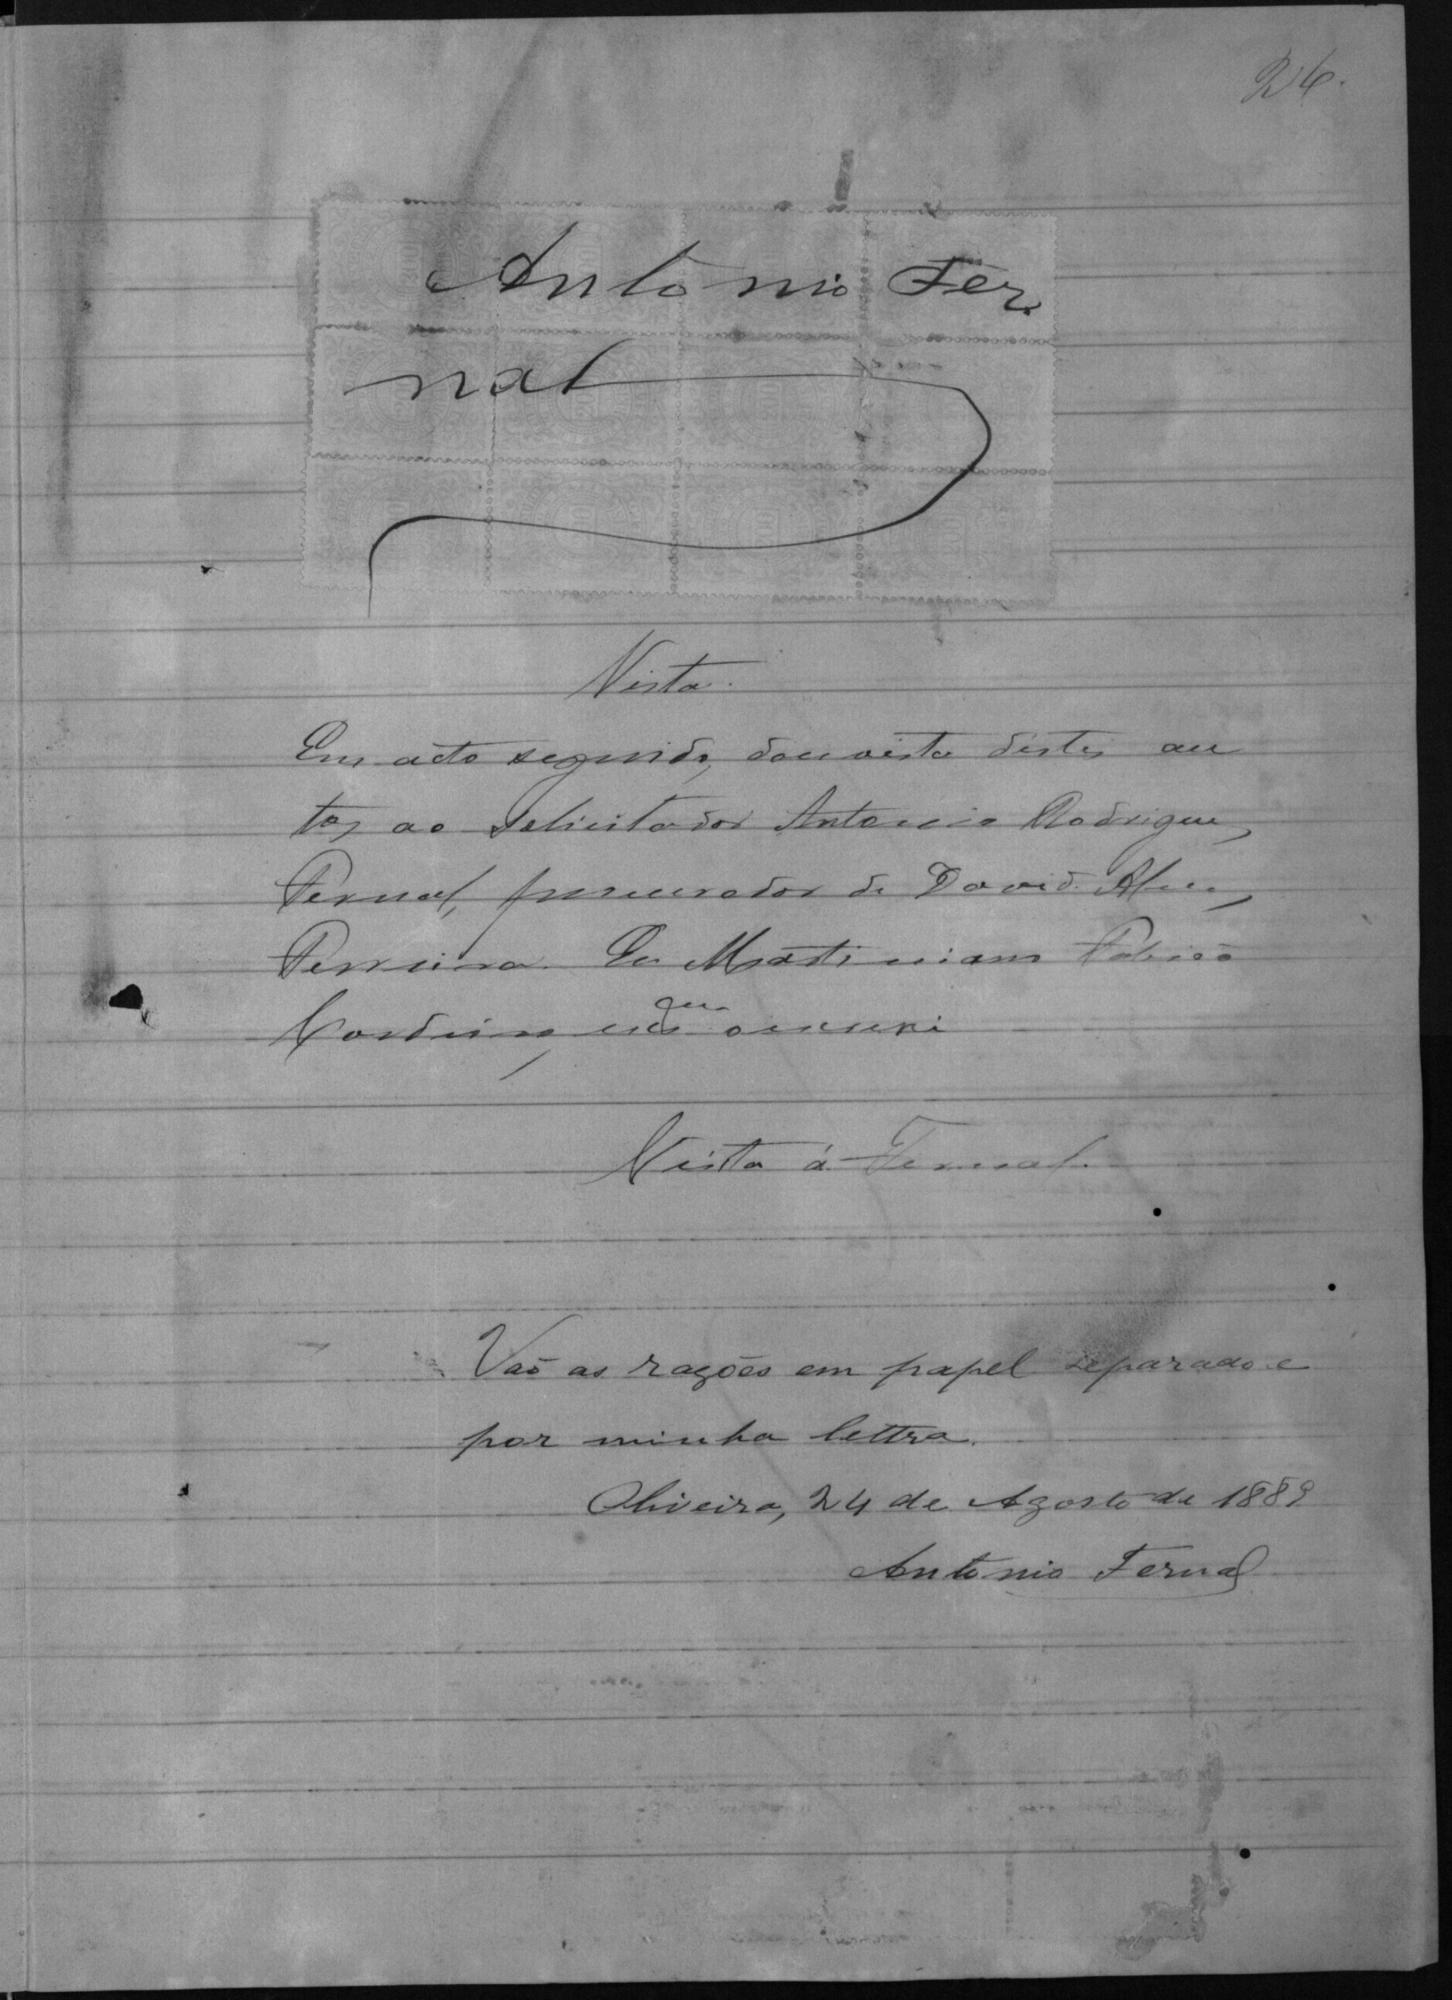 26.
Antonio Fer
nal
Vista.
Em acto seguido, dou vista d'estes au
tos ao solicitador Antonio Rodrigues
Fernal, procurador de David Alves
Ferreira. Eu Martiniano
Cordeiro que escrevi
Vista á Fernal.
Vaõ as razões em papel separado e
por minha lettra.
Oliveira, 24 de Agosto de 1889
Antonio Fernal